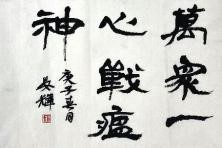 萬衆一
心戰瘟
神
庚子春月
吳輝